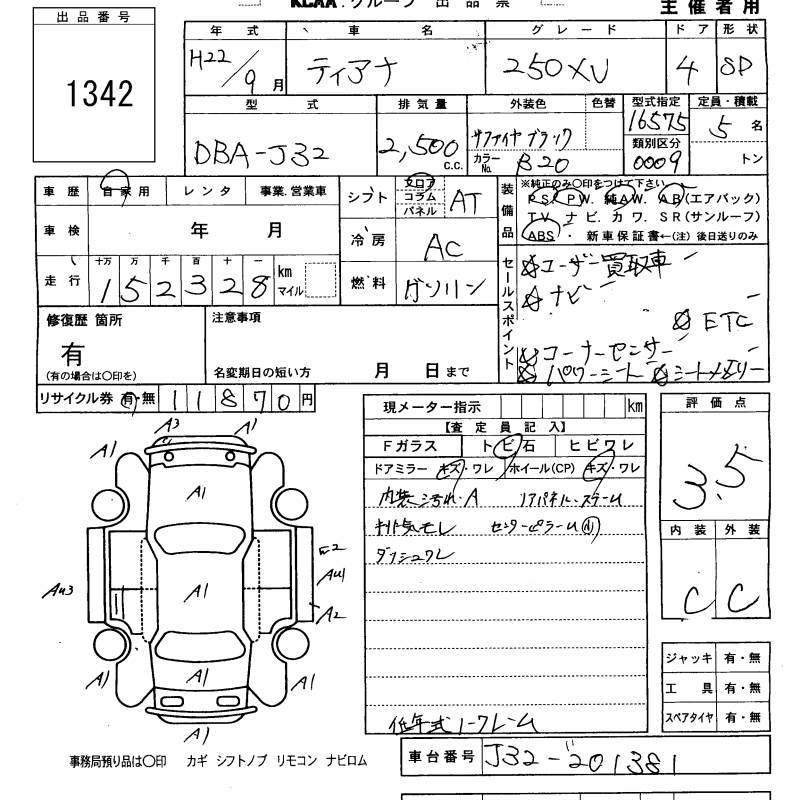 KCAA.グループ 出品票 主催者用
出品番号
1342
年式 車名 グレード ドア 形状
H22/9月 ティアナ 250XV 4 SD
型式 排気量 外装色 色替 型式指定 定員・積載
DBA-J32 2,500 c.c. サファイヤブラック 16575 5名
カラーNo. B20 類別区分 0009 トン
車歴 自家用 レンタ 事業.営業車
シフト フロア コラム パネル AT
装備品 ※純正のみ〇印をつけて下さい
PS. PW. 純AW. AB(エアバック)
TV. ナビ. カワ. SR(サンルーフ)
ABS ・ 新車保証書←(注) 後日送りのみ
車検 年 月
冷房 AC
走行 十万 万 千 百 十 一
152328 km マイル
燃料 ガソリン
セールスポイント
☆ユーザー買取車
☆ナビ
☆ETC
☆コーナーセンサー
☆パワーシート ☆シートメモリー
修復歴 箇所
有
(有の場合は〇印を)
注意事項
名変期日の短い方 月 日まで
リサイクル券 有・無 11870円
現メーター指示 km
評価点
3.5
【査定員記入】
Fガラス トビ石 ヒビワレ
ドアミラー キズ・ワレ ホイール(CP) キズ・ワレ
内装汚れ・A リアパネル・スチーム
排気モレ センターピラーム
ダッシュワレ
低年式
内装 外装
C C
A3
A1 A1
A1
E2
AU1
AU3 A1
A2
A1 A1
A1
A1
ジャッキ 有・無
工具 有・無
スペアタイヤ 有・無
事務局預り品は〇印 カギ シフトノブ リモコン ナビロム
車台番号 J32-201381